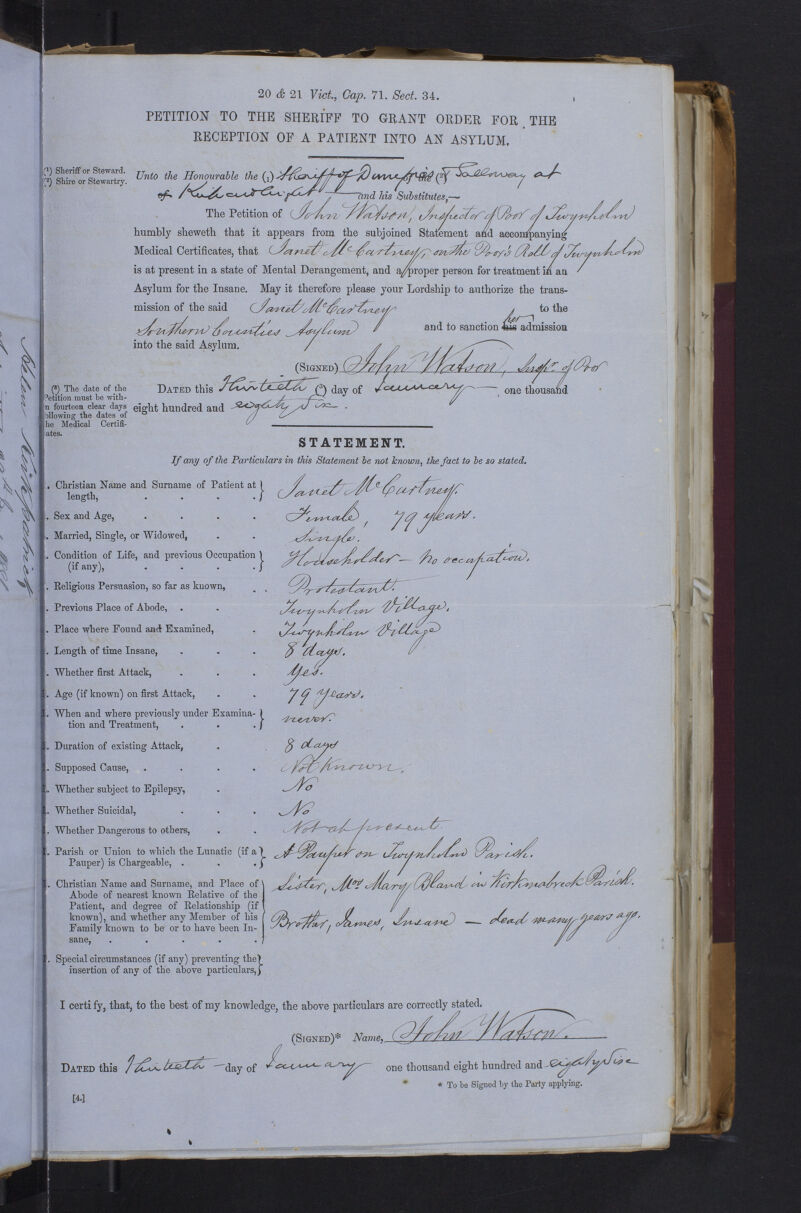 20 & 21 Vict., Cap. 71. Sect. 34.
PETITION TO THE SHERIFF TO GRANT ORDER FOR THE
RECEPTION OF A PATIENT INTO AN ASYLUM.
(¹) Sheriff or Steward.
(²) Shire or Stewartry.
Unto the Honourable the (1) Sheriff of Dumfries & Galloway at
of Kirkcudbright and his Substitutes,—
The Petition of John Watson, Inspector of Poor of Twynholm
humbly sheweth that it appears from the subjoined Statement and accompanying
Medical Certificates, that Janet McCartney, on the Poor's Roll of Twynholm
is at present in a state of Mental Derangement, and a proper person for treatment in an
Asylum for the Insane. May it therefore please your Lordship to authorize the trans-
mission of the said Janet McCartney to the
Southern Counties Asylum and to sanction his her admission
into the said Asylum.
(SIGNED) John Watson, Inspr. of Poor
(³) The date of the
Petition must be with-
n fourteen clear days
ollowing the dates of
he Medical Certifi-
ates.
DATED this Thirtieth (³) day of January, one thousand
eight hundred and eighty Six.
STATEMENT.
If any of the Particulars in this Statement be not known, the fact to be so stated.
. Christian Name and Surname of Patient at length, Janet McCartney.
. Sex and Age, Female, 79 years.
. Married, Single, or Widowed, Single.
. Condition of Life, and previous Occupation (if any), Householder — No occupation.
. Religious Persuasion, so far as known, Protestant.
. Previous Place of Abode, Twynholm Village.
. Place where Found and Examined, Twynholm Village
. Length of time Insane, 8 days.
. Whether first Attack, Yes.
. Age (if known) on first Attack, 79 years.
. When and where previously under Examination and Treatment, never.
. Duration of existing Attack, 8 days
. Supposed Cause, Not Known.
. Whether subject to Epilepsy, No
. Whether Suicidal, No
. Whether Dangerous to others, Not at present
. Parish or Union to which the Lunatic (if a Pauper) is Chargeable, A Pauper on Twynholm Parish.
. Christian Name and Surname, and Place of Sister, Mrs Mary Bland in Kirkmabreck Parish.
Abode of nearest known Relative of the
Patient, and degree of Relationship (if
known), and whether any Member of his Brother, James, Insane — dead many years ago.
Family known to be or to have been In-
sane,
. Special circumstances (if any) preventing the
insertion of any of the above particulars,
I certify, that, to the best of my knowledge, the above particulars are correctly stated.
(SIGNED)* Name, John Watson.
DATED this Thirtieth day of January one thousand eight hundred and eighty Six
* To be Signed by the Party applying.
[4.]